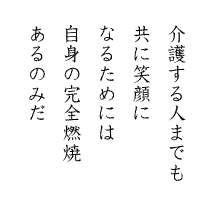 介護する人までも
共に笑顔に
なるためには
自身の完全燃焼
あるのみだ